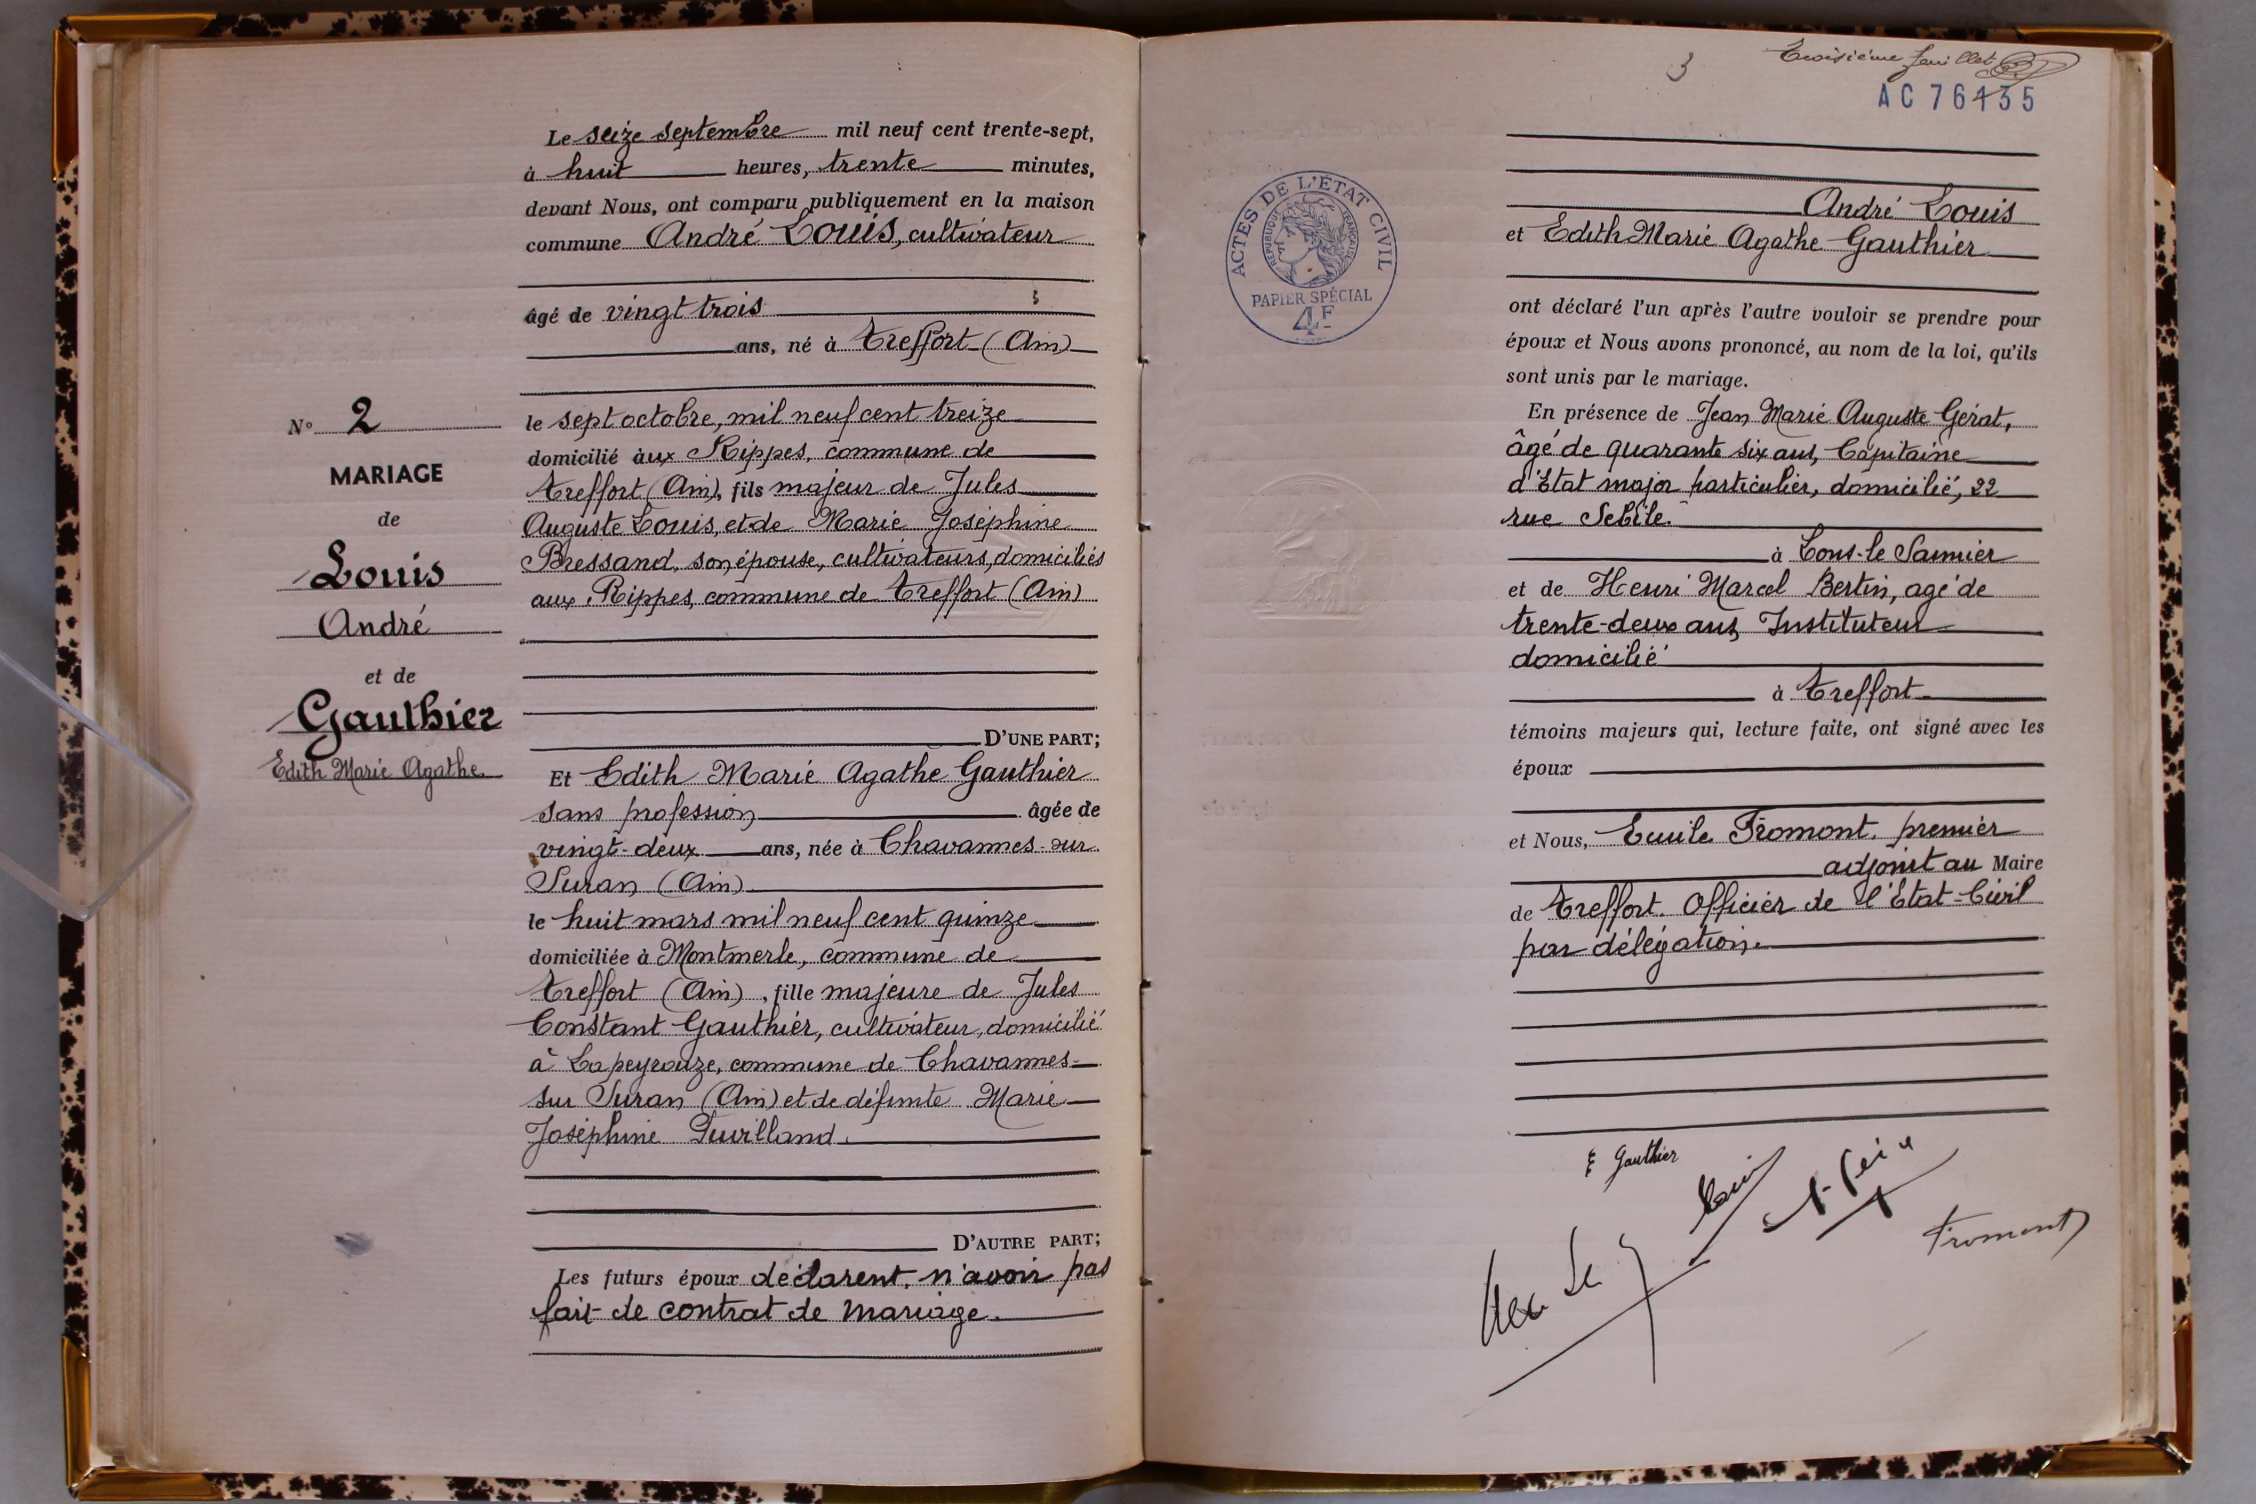 Le seize septembre mil neuf cent trente-sept,
à huit heures, trente minutes,
devant Nous, ont comparu publiquement en la maison
commune André Louis, cultivateur
âgé de vingt trois
ans, né à Treffort (Ain)
le sept octobre, mil neuf cent treize
domicilié aux Rippes, commune de
Treffort (Ain), fils majeur de Jules
Auguste Louis, et de Marie Joséphine
Bressand, son épouse, cultivateurs, domiciliés
aux Rippes, commune de Treffort (Ain)
D'UNE PART;
N° 2
MARIAGE
de
Louis
André
et de
Gauthier
Edith Marie Agathe
Et Edith Marie Agathe Gauthier
sans profession âgée de
vingt-deux ans, née à Chavannes-sur
Suran (Ain)
le huit mars mil neuf cent quinze
domiciliée à Montmerle, commune de
Treffort (Ain), fille majeure de Jules
Constant Gauthier, cultivateur, domicilié
à Lapeyrouze, commune de Chavannes-
sur Suran (Ain) et de défunte Marie
Joséphine
D'AUTRE PART;
Les futurs époux déclarent n'avoir pas
fait de contrat de mariage.
3
Troisième feuillet
AC 76435
ACTES DE L'ÉTAT CIVIL
RÉPUBLIQUE FRANÇAISE
PAPIER SPÉCIAL
4F
André Louis
et Edith Marie Agathe Gauthier
ont déclaré l'un après l'autre vouloir se prendre pour
époux et Nous avons prononcé, au nom de la loi, qu'ils
sont unis par le mariage.
En présence de Jean Marie Auguste Gérat,
âgé de quarante six ans, Capitaine
d'Etat major particulier, domicilié, 22
rue Sebile.
à Lons-le Saunier
et de Henri Marcel Bertin, agé de
trente-deux ans, Instituteur
domicilié
à Treffort
témoins majeurs qui, lecture faite, ont signé avec les
époux
et Nous, Emile Fromont, premier
adjoint au Maire
de Treffort. Officier de l'Etat-Civil
par délégation.
E Gauthier
Louis
Fromont